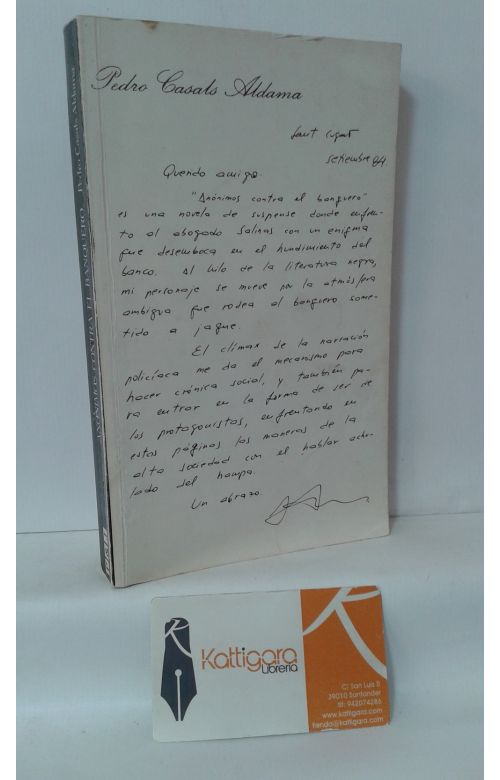 Pedro Casals Aldama
Sant Cugat
setiembre 84
Querido amigo:
"Anónimos contra el banquero"
es una novela de suspense donde enfren-
to al abogado Salinas con un enigma
que desemboca en el hundimiento del
banco. Al hilo de la literatura negra,
mi personaje se mueve por la atmósfera
ambigua que rodea al banquero some-
tido a jaque.
El clímax de la narración
policíaca me da el mecanismo para
hacer crónica social, y también pa-
ra entrar en la forma de ser de
los protagonistas, enfrentando en
estas páginas las maneras de la
alta sociedad con el hablar acha-
lado del hampa.
Un abrazo.
ANÓNIMOS CONTRA EL BANQUERO Pedro Casals Aldama
Kattigara
Librería
C/ San Luis 8
39010 Santander
tlf: 942074286
www.kattigara.com
tienda@kattigara.com